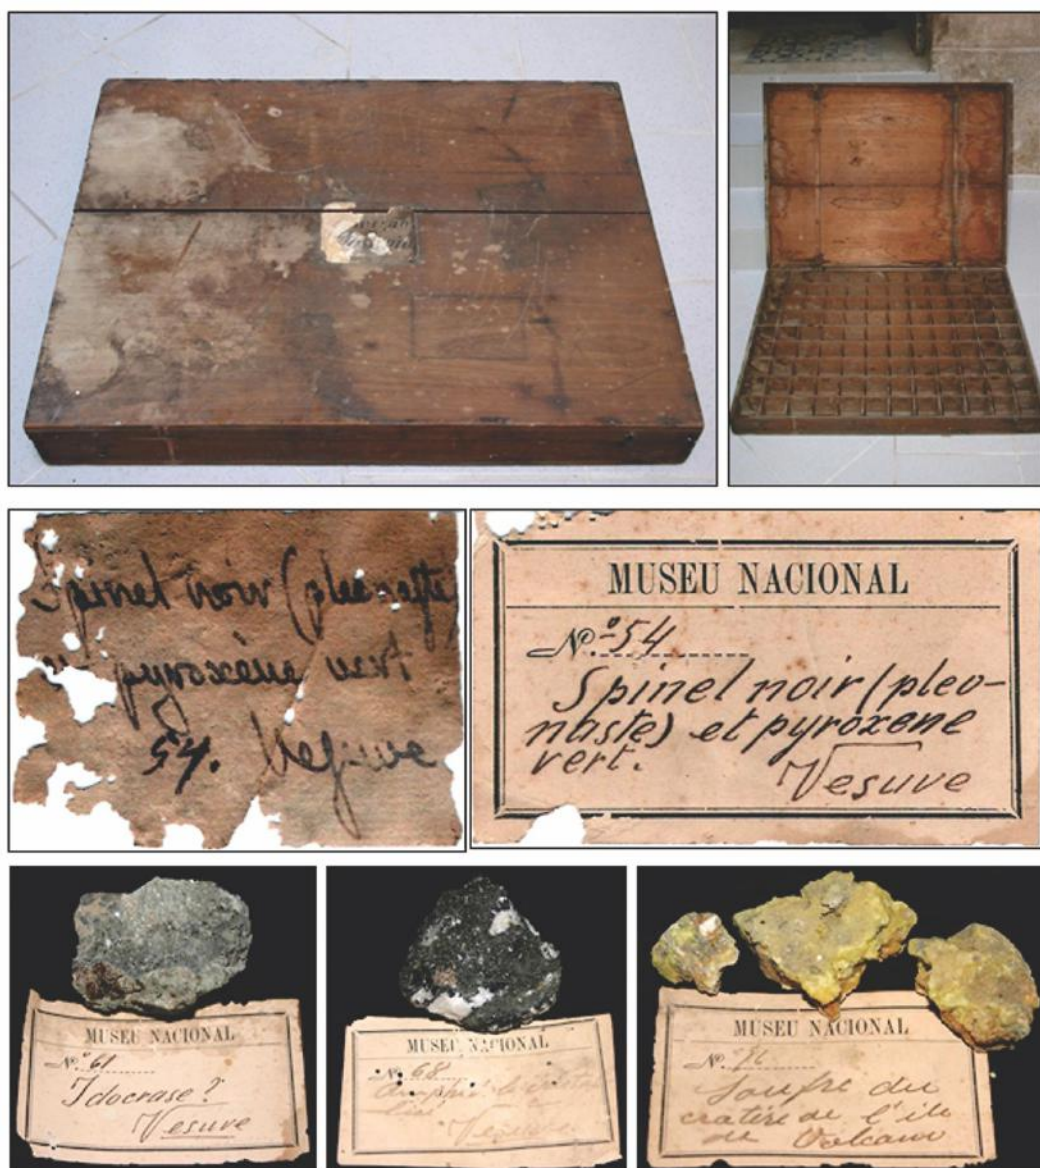 Spinel noir (pleonaste
pyroxène vert
54. Vesuve
MUSEU NACIONAL
Nº 54
Spinel noir (pleo-
naste) et pyroxene
vert.
Vesuve
MUSEU NACIONAL
Nº 61
Idocrase?
Vesuve
MUSEU NACIONAL
Nº 68
Vesuve
MUSEU NACIONAL
Nº
Soufre du
cratère de l'ile
de Volcano